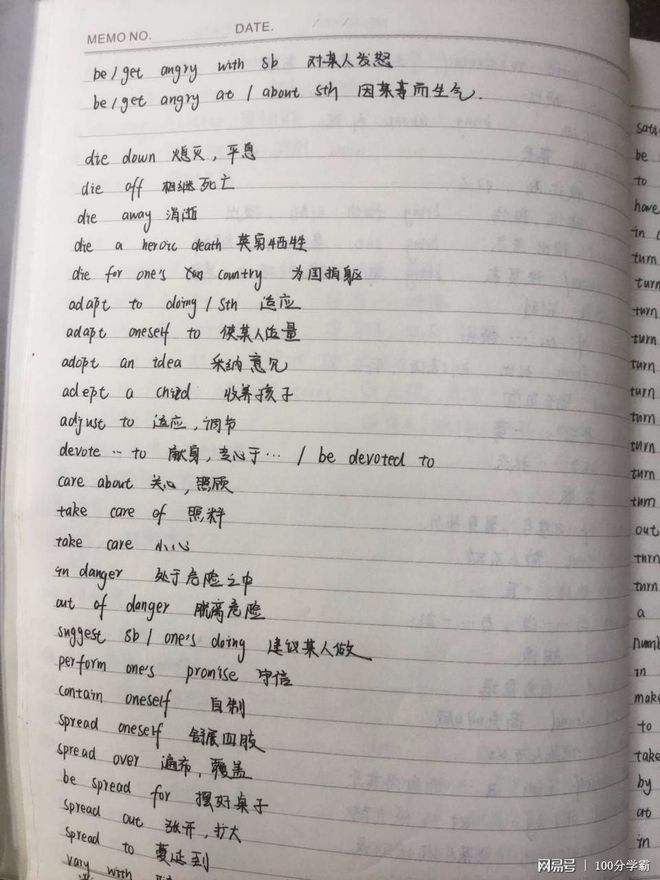 MEMO NO. DATE. / /
be / get angry with sb 对某人发怒
be / get angry at / about sth 因某事而生气.
die down 熄灭, 平息
die off 相继死亡
die away 消逝
die a heroic death 英勇牺牲
die for one's country 为国捐躯
adapt to doing / sth 适应
adapt oneself to 使某人适量
adopt an idea 采纳意见
adept a child 收养孩子
adjust to 适应, 调节
devote … to 献身, 专心于… / be devoted to
care about 关心, 照顾
take care of 照料
take care 小心
in danger 处于危险之中
out of danger 脱离危险
suggest sb / one's doing 建议某人做
perform one's promise 守信
contain oneself 自制
spread oneself 舒展四肢
spread over 遍布, 覆盖
be spread for 摆好桌子
spread out 张开, 扩大
spread to 蔓延到
vary with
be
to
have
in
turn
turn
turn
turn
turn
turn
turn
turn
turn
turn
out
turn
turn
a
numb
in
make
to
take
by
at
in
网易号 | 100分学霸